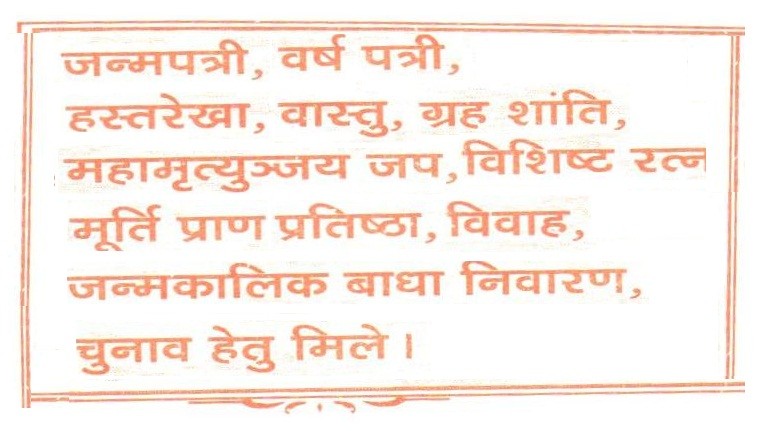 जन्मपत्री, वर्ष पत्री,
हस्तरेखा, वास्तु, ग्रह शांति,
महामृत्युञ्जय जप, विशिष्ट रत्न
मूर्ति प्राण प्रतिष्ठा, विवाह,
जन्मकालिक बाधा निवारण,
चुनाव हेतु मिले ।